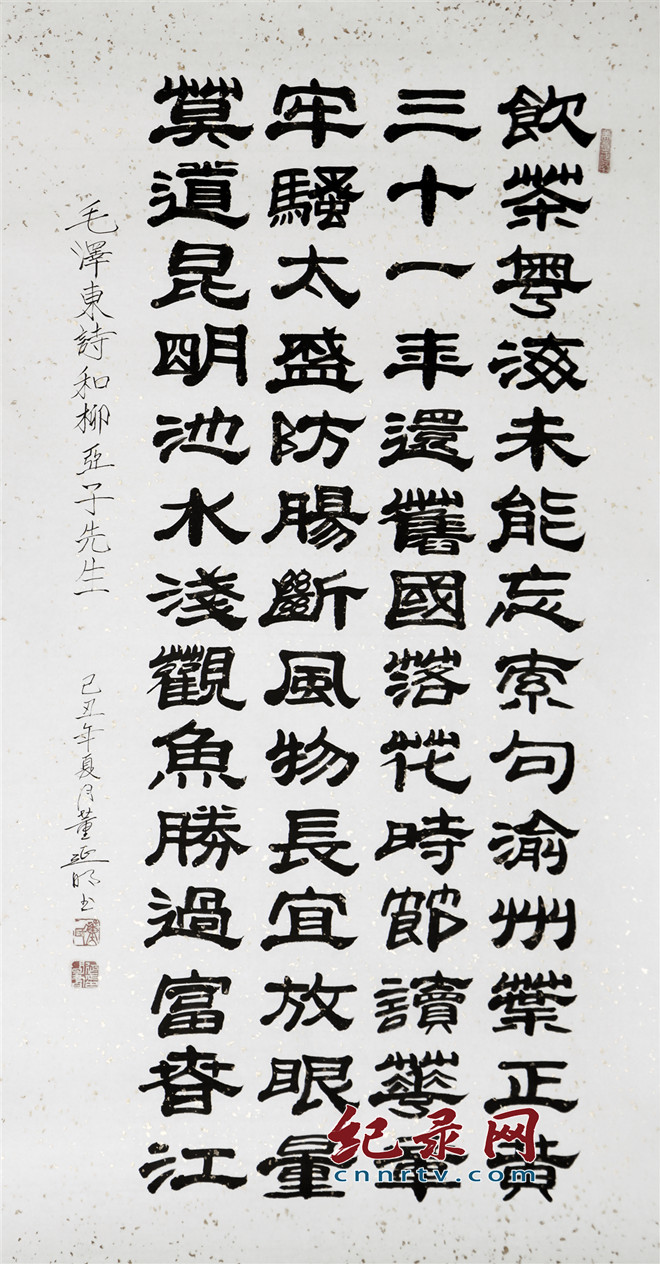 飲茶粵海未能忘索句渝州葉正黃
三十一年還舊國落花時節讀華章
牢騷太盛防腸斷風物長宜放眼量
莫道昆明池水淺觀魚勝過富春江
毛澤東詩和柳亞子先生
己丑年夏月董延明书
纪录网
cnnrtv.com